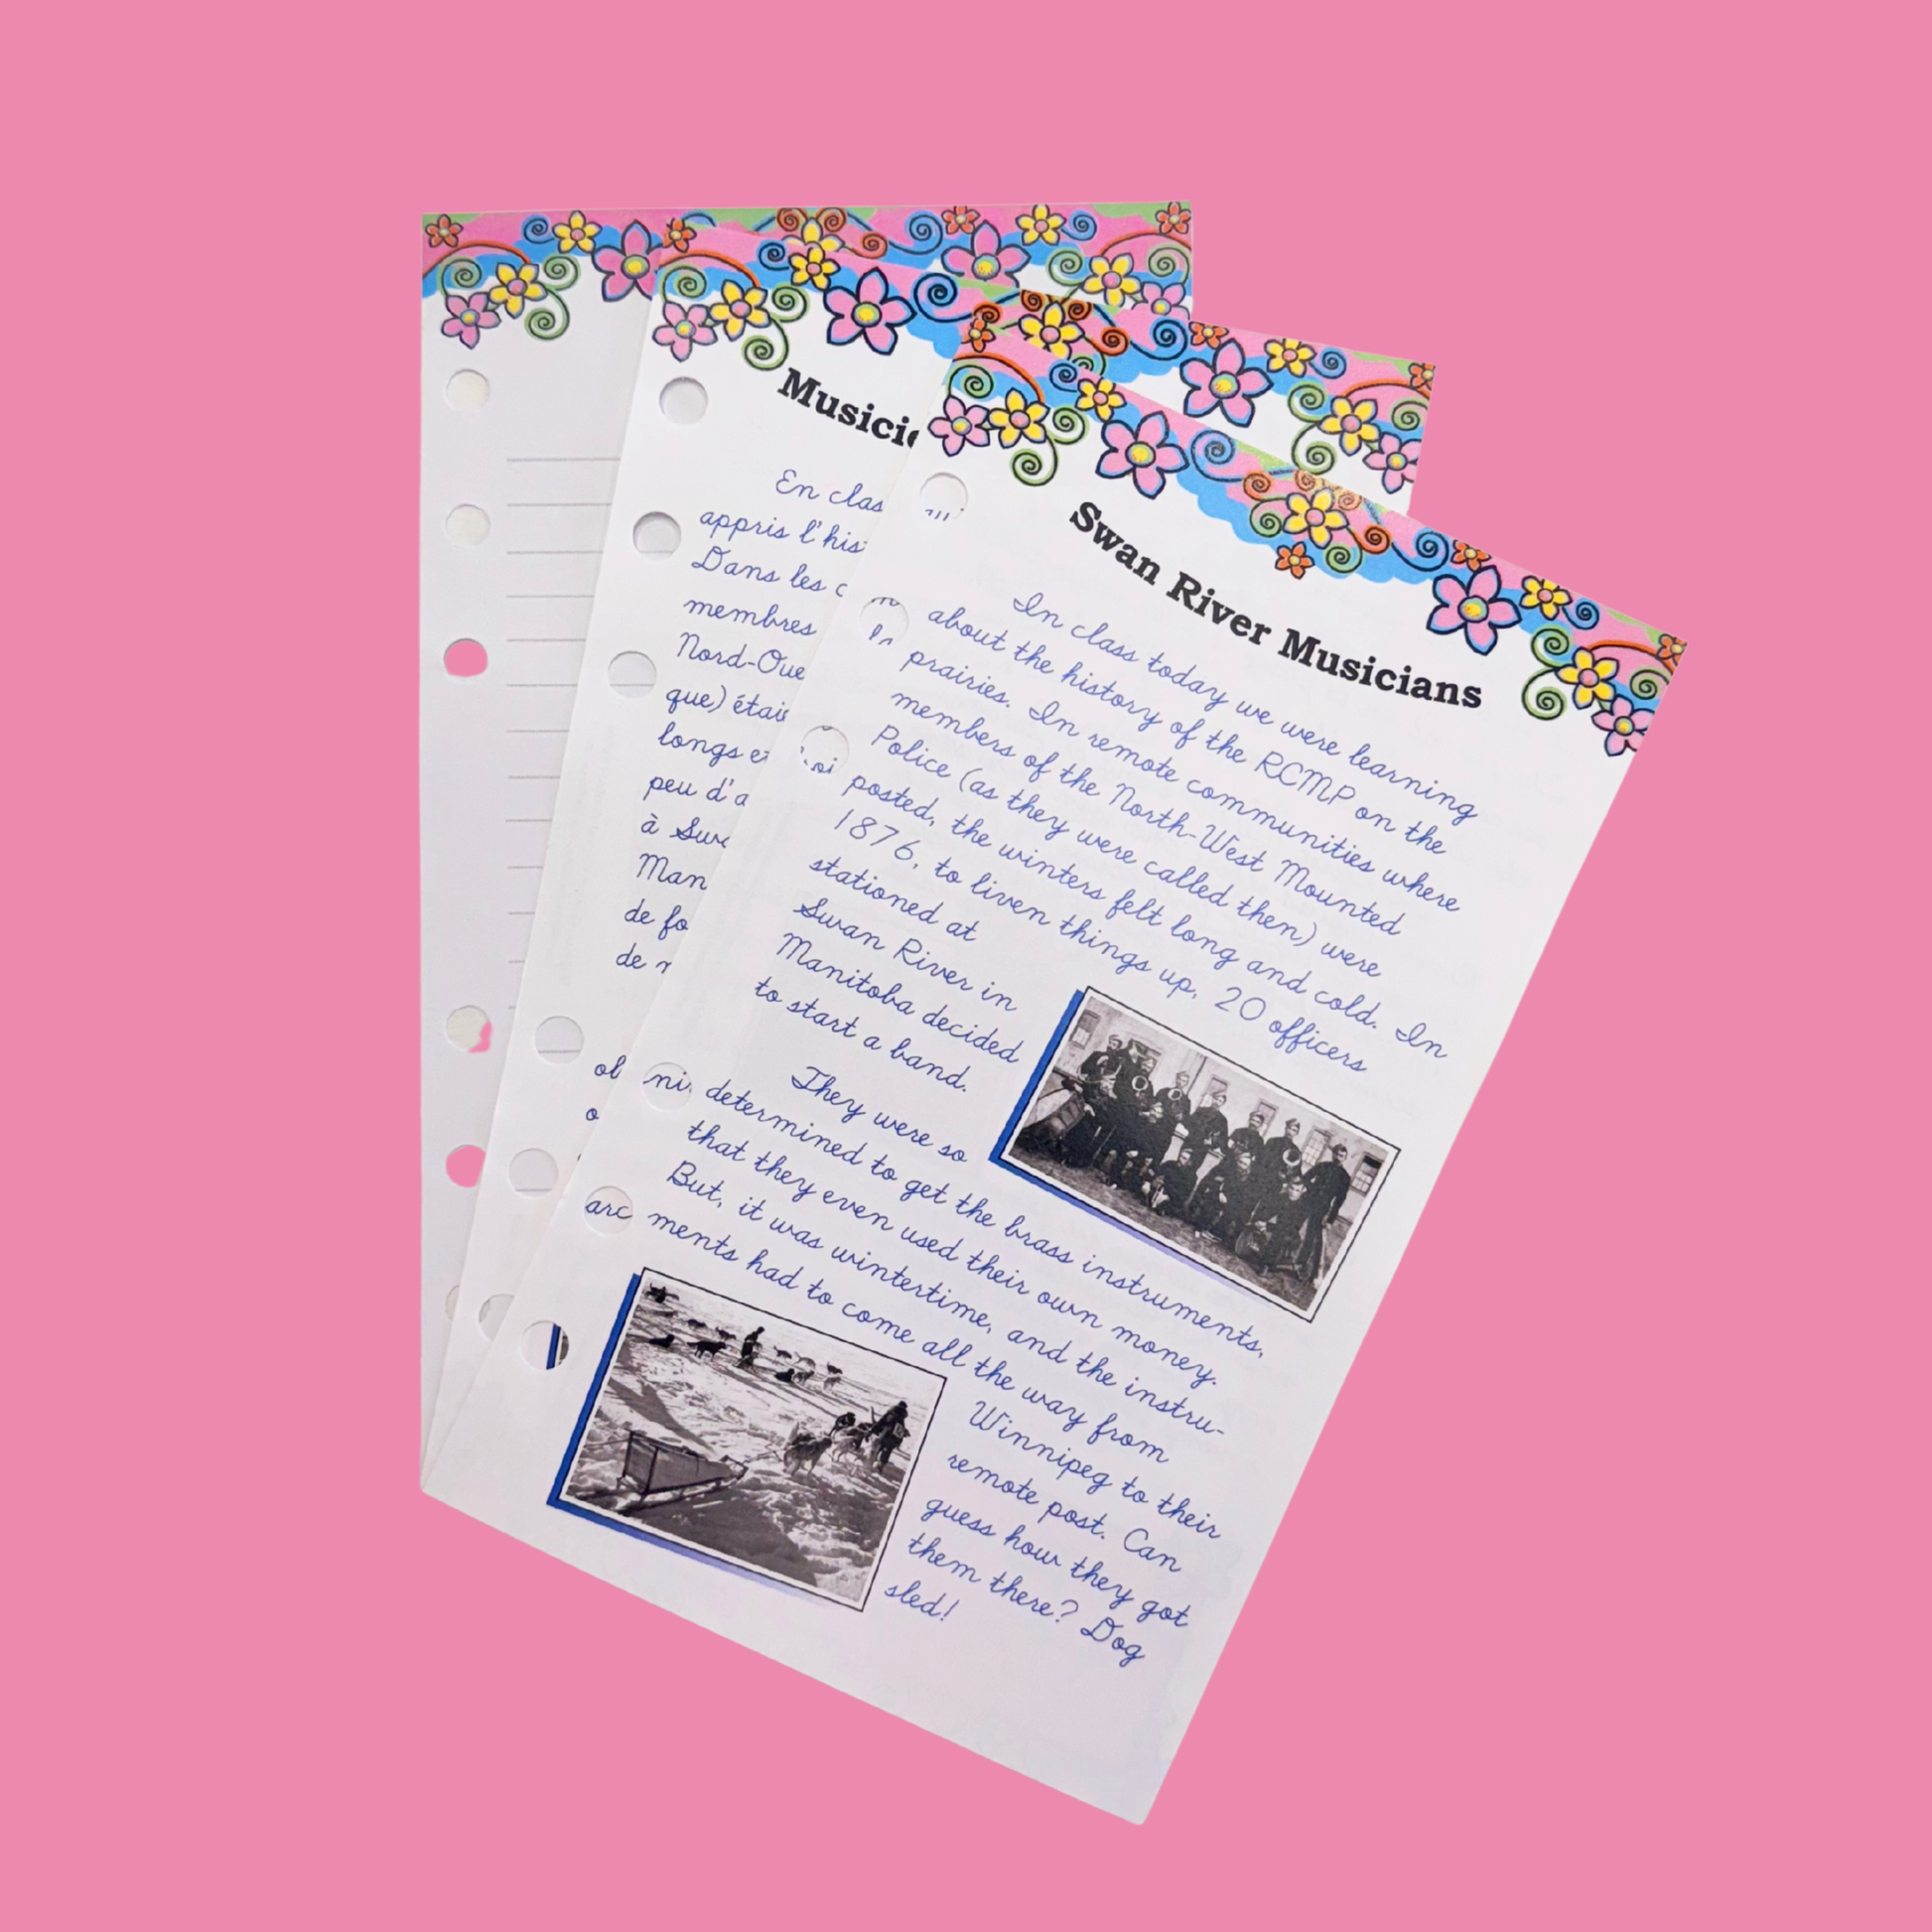 Musici
En clas
appris l'his
Dans les
membres
Nord-Oue
que) étai
longs et
peu d'a
à Swa
Man
de fo
de
Swan River Musicians
In class today we were learning
about the history of the RCMP on the
prairies. In remote communities where
members of the North-West Mounted
Police (as they were called then) were
posted, the winters felt long and cold. In
1876, to liven things up, 20 officers
stationed at
Swan River in
Manitoba decided
to start a band.
They were so
determined to get the brass instruments,
that they even used their own money.
But, it was wintertime, and the instru-
ments had to come all the way from
Winnipeg to their
remote post. Can
guess how they got
them there? Dog
sled!